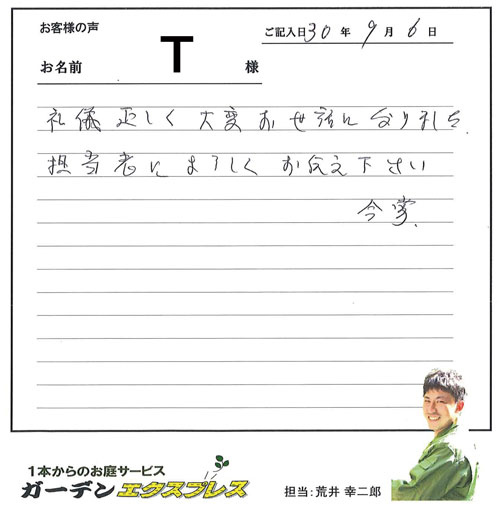 お客様の声
ご記入日30年9月6日
お名前 T 様
礼儀正しく大変お世話になりました.
担当者によろしくお伝え下さい
1本からのお庭サービス
ガーデンエクスプレス
担当:荒井 幸二郎